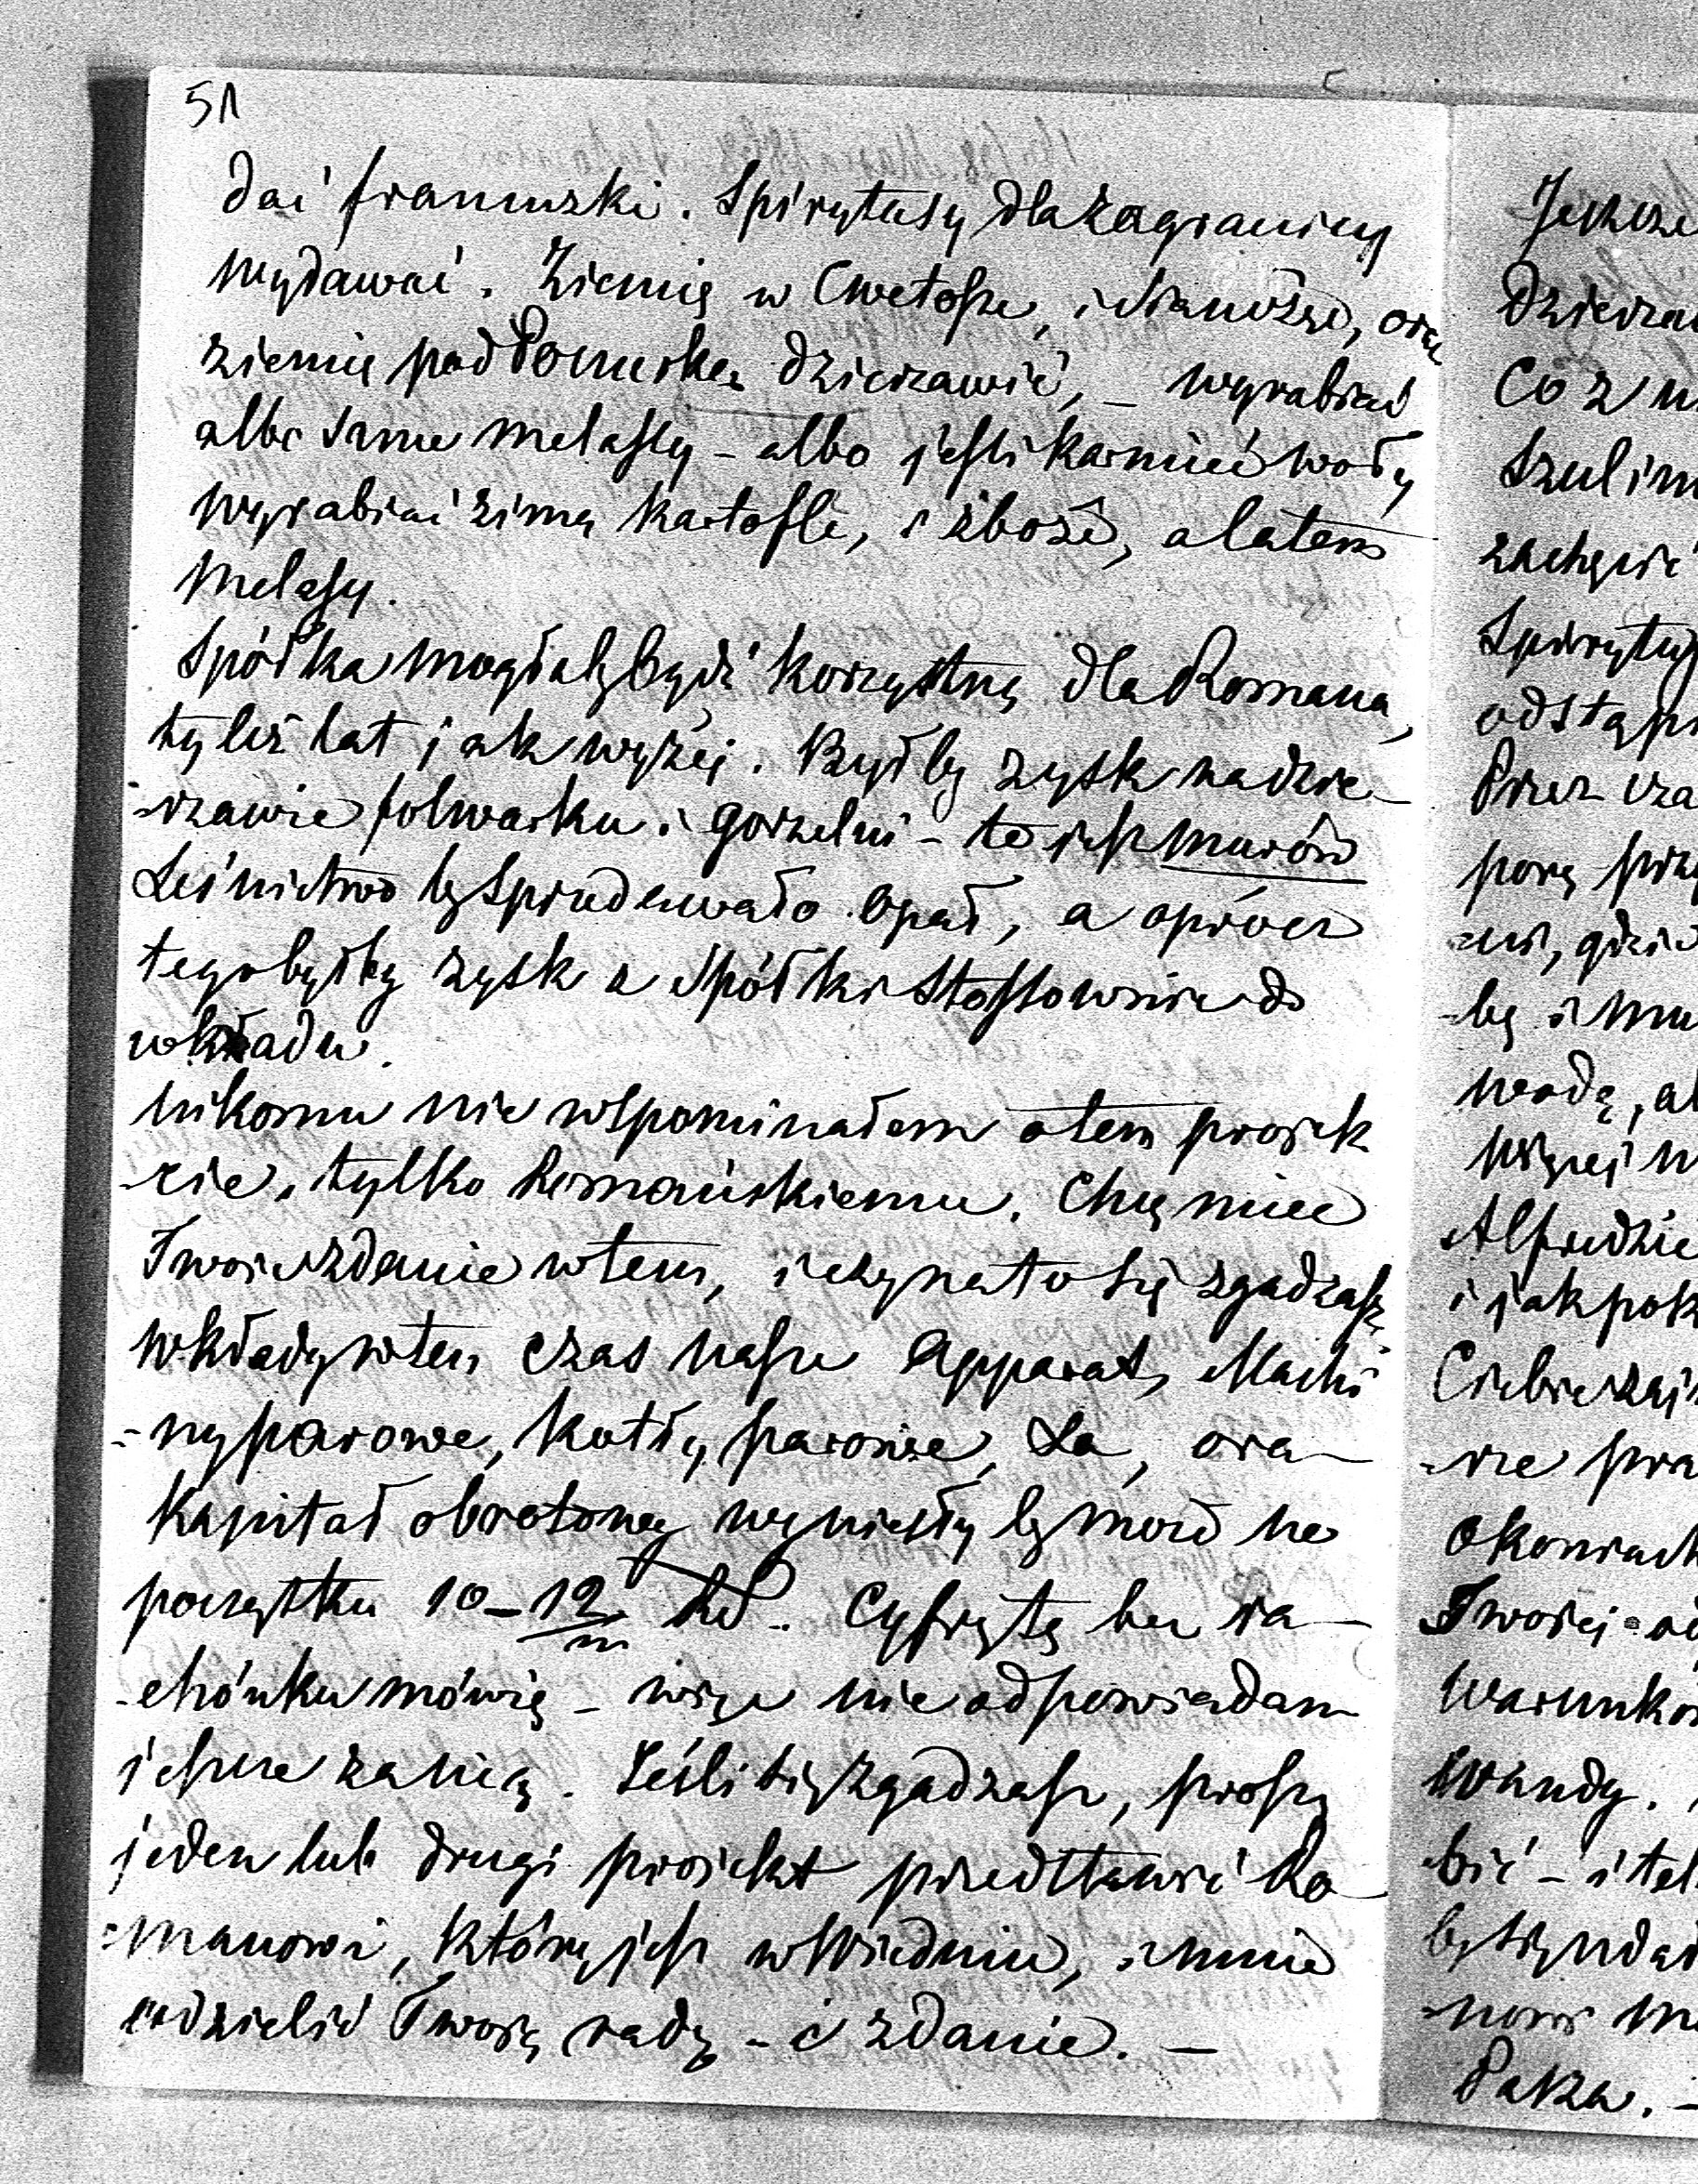 51
dać francuzki. Spirytusy dla zagranicy
wydawać. Ziemię w Cwetosze, i Sianożęć, oraz
ziemię pod dzierzawić, – wyrabiać
albo same melassy – albo jeśli karmić woły
wyrabiać zimą kartofle, i zboże, a latem
melassy.
Spółka mogłaby być korzystną dla Romana,
tyleż lat jak wyżej. Byłby zysk na dzie-
-rzawie folwarku i gorzelni – to jest murów
Leśnictwo by sprzedawało opał, a oprócz
tego byłby zysk z Spółki stossownie do
wkładu.
Nikomu nie wspominałem o tem projek
-cie, tylko Romańskiemu. Chcę mieć
Twoje zdanie w tem, i czy na to się zgadzasz
wkłady w ten czas nasze apparat, Machi
-ny parowe, kotły parowe, &a, oraz
Kapitał obrotowy wyniosły by może na
początku 10–12/m Rs. Cyfrę tę bez ra-
-chónku mówię – więc nie odpowiadam
jeszcze za nią. Jeśli się zgadzasz, proszę
jeden lub drugi projekt przedstawić Ro-
-manowi, który jest w Wiedniu, i mnie
udzielić Twoją radę – i zdanie. –
Dzierza
Co z
Szulim
zachęcić
Spirytus
odstąpi
Przez cza
porę przy
-ni, gdzie
-by i mu
wodę, al
więcej w
Alfredzie
i jak pok
Ciebie zaj
-rze pra
Okoniach
Twojej
warunków
Wandy.
-bić – i tel
by się udał
-nowi m
Paka. –